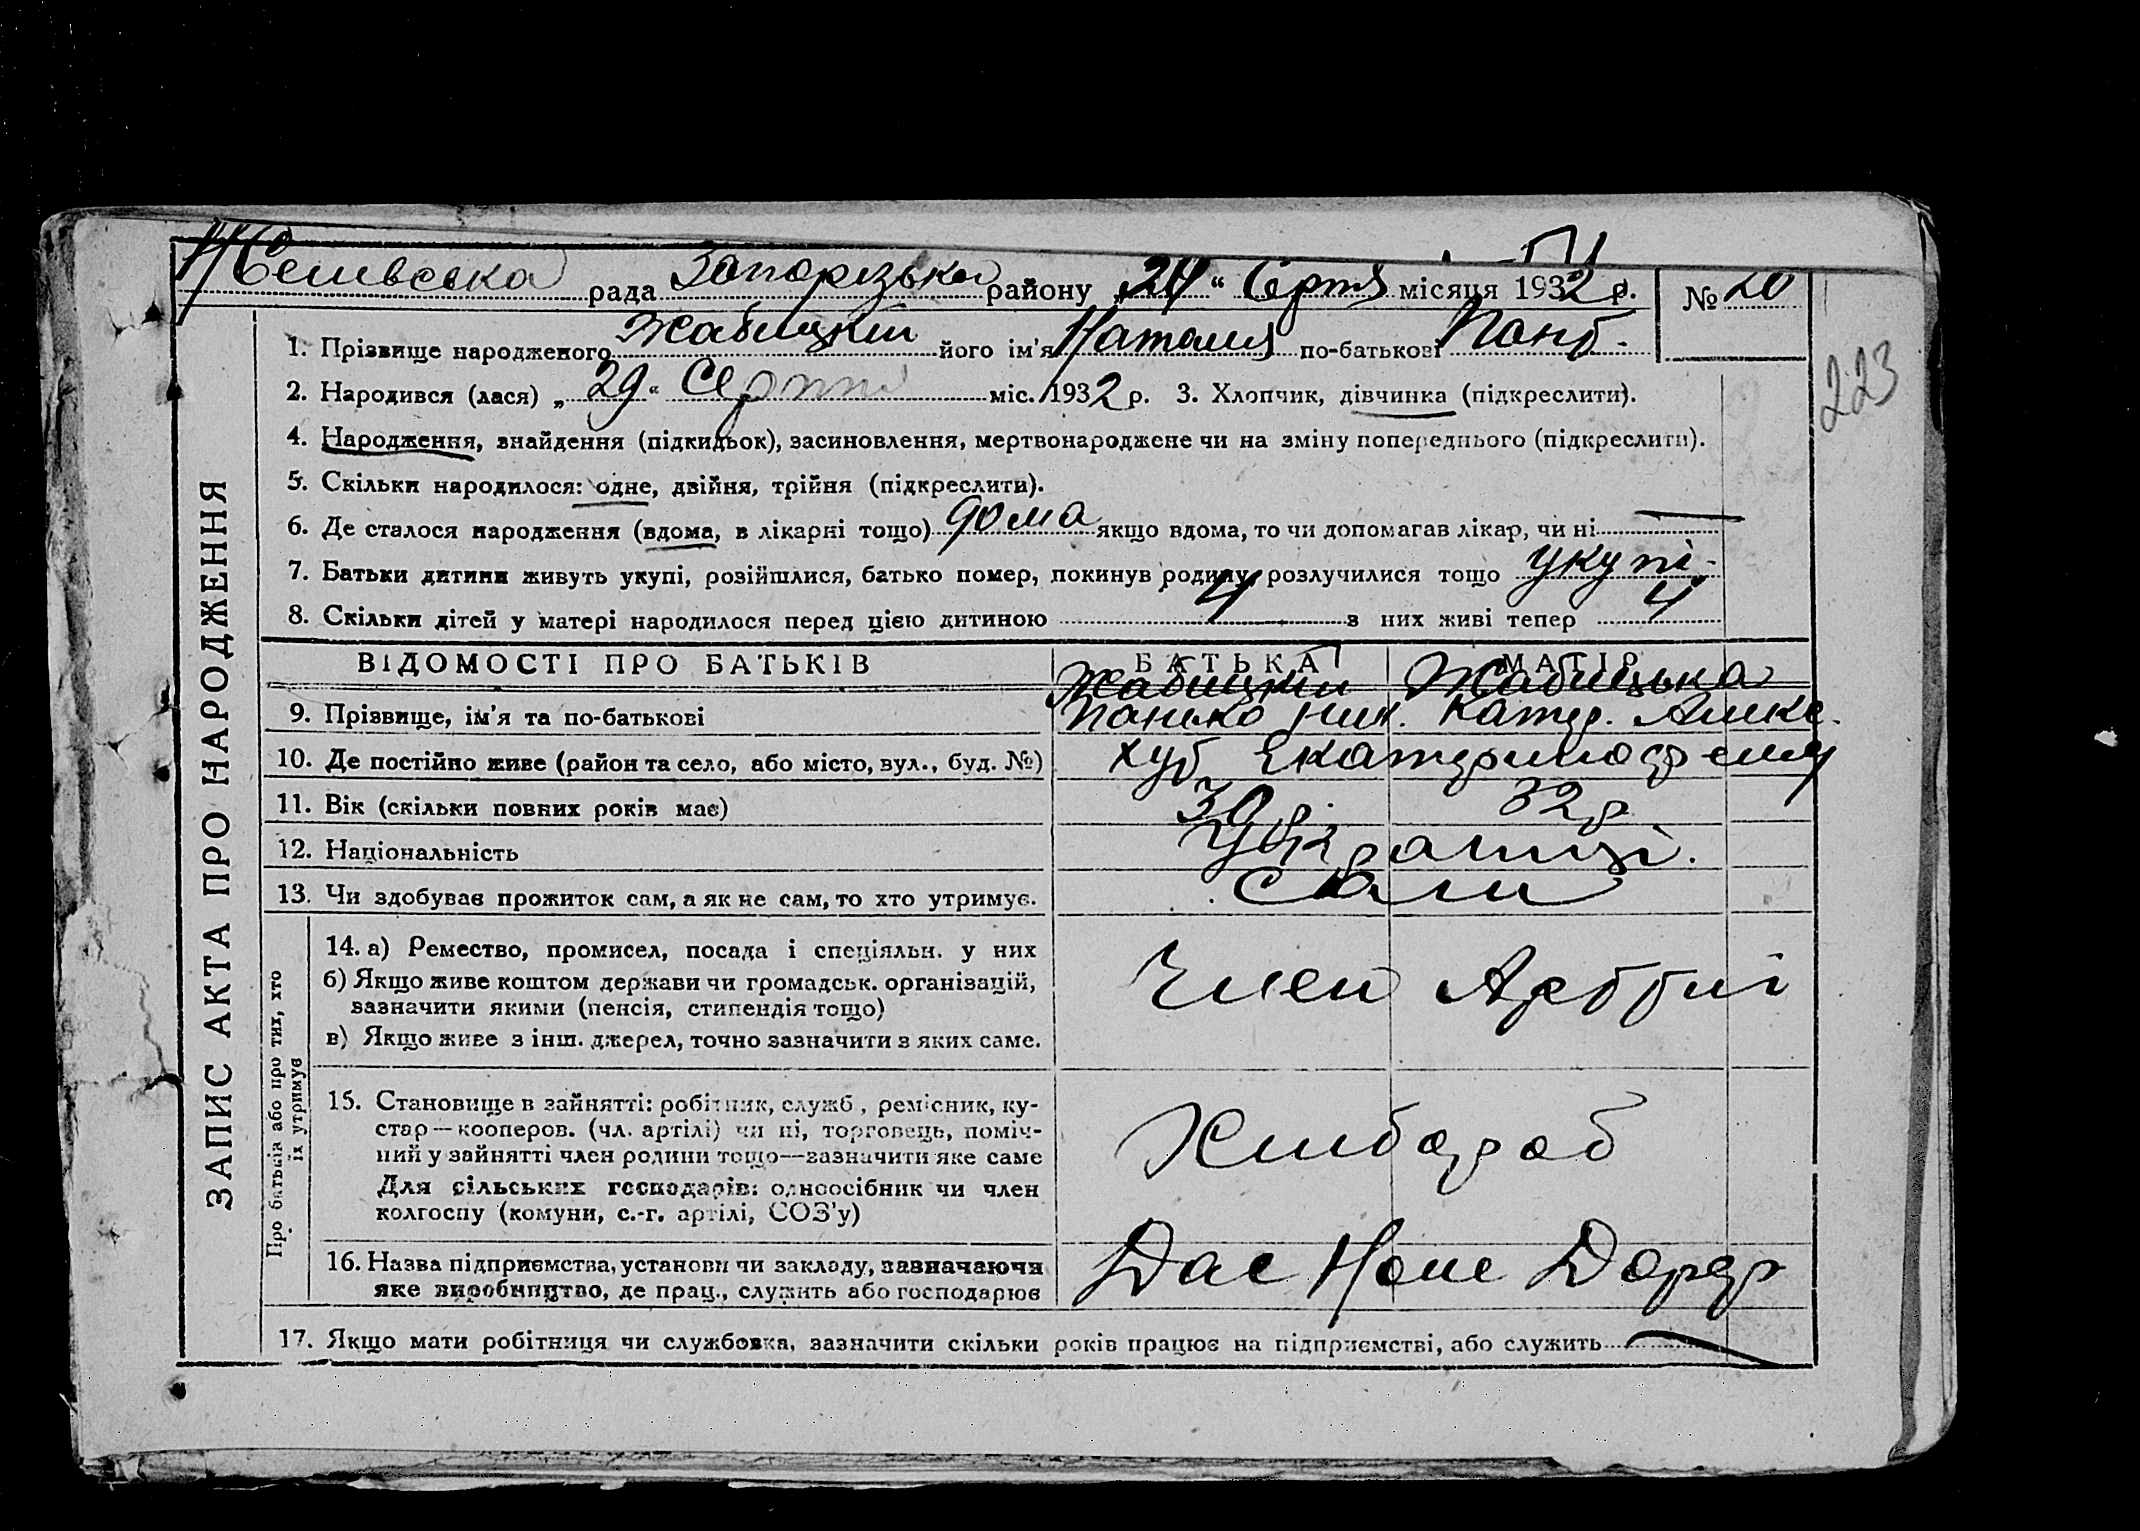 рада Запорізька району 24 “ Серпя місяця 1932 р. № 20
1. Прізвище народженого Жабицкий його ім'я Наталия по-батькові Панб.
223
2. Народився (лася) „ 29 “ Серпня міс. 1932 р. 3. Хлопчик, дівчинка (підкреслити).
4. Народження, знайдення (підкидьок), засиновлення, мертвонароджене чи на зміну попереднього (підкреслити).
5. Скільки народилося: одне, двійня, трійня (підкреслити).
6. Де сталося народження (вдома, в лікарні тощо) дома якщо вдома, то чи допомагав лікар, чи ні —
7. Батьки дитини живуть укупі, розійшлися, батько помер, покинув родину, розлучилися тощо укупі
8. Скільки дітей у матері народилося перед цією дитиною 4 з них живі тепер 4
ВІДОМОСТІ ПРО БАТЬКІВ БАТЬКА МАТІР
Жабицкий Жабицька
9. Прізвище, ім'я та по-батькові Панько Ник. Катер. Алике.
10. Де постійно живе (район та село, або місто, вул., буд. №) хут
11. Вік (скільки повних років має) 30 р. 32 р
12. Національність Українці.
13. Чи здобуває прожиток сам, а як не сам, то хто утримує. сами
14. а) Ремество, промисел, посада і спеціяльн. у них
б) Якщо живе коштом держави чи громадськ. організацій,
зазначити якими (пенсія, стипендія тощо)
в) Якщо живе з інш. джерел, точно зазначити з яких саме.
Член Артілі
15. Становище в зайнятті: робітник, служб., ремісник, ку-
стар — кооперов. (чл. артілі) чи ні, торговець, поміч-
ний у зайнятті член родини тощо—зазначити яке саме
Для сільських господарів: одноосібник чи член
колгоспу (комуни, с.-г. артілі, СОЗ'у)
Хлібороб
16. Назва підприємства, установи чи закладу, зазначаючи
яке виробництво, де прац., служить або господарює
17. Якщо мати робітниця чи службовка, зазначити скільки років працює на підприємстві, або служить —
ЗАПИС АКТА ПРО НАРОДЖЕННЯ
Про батьків або про тих, хто
їх утримує